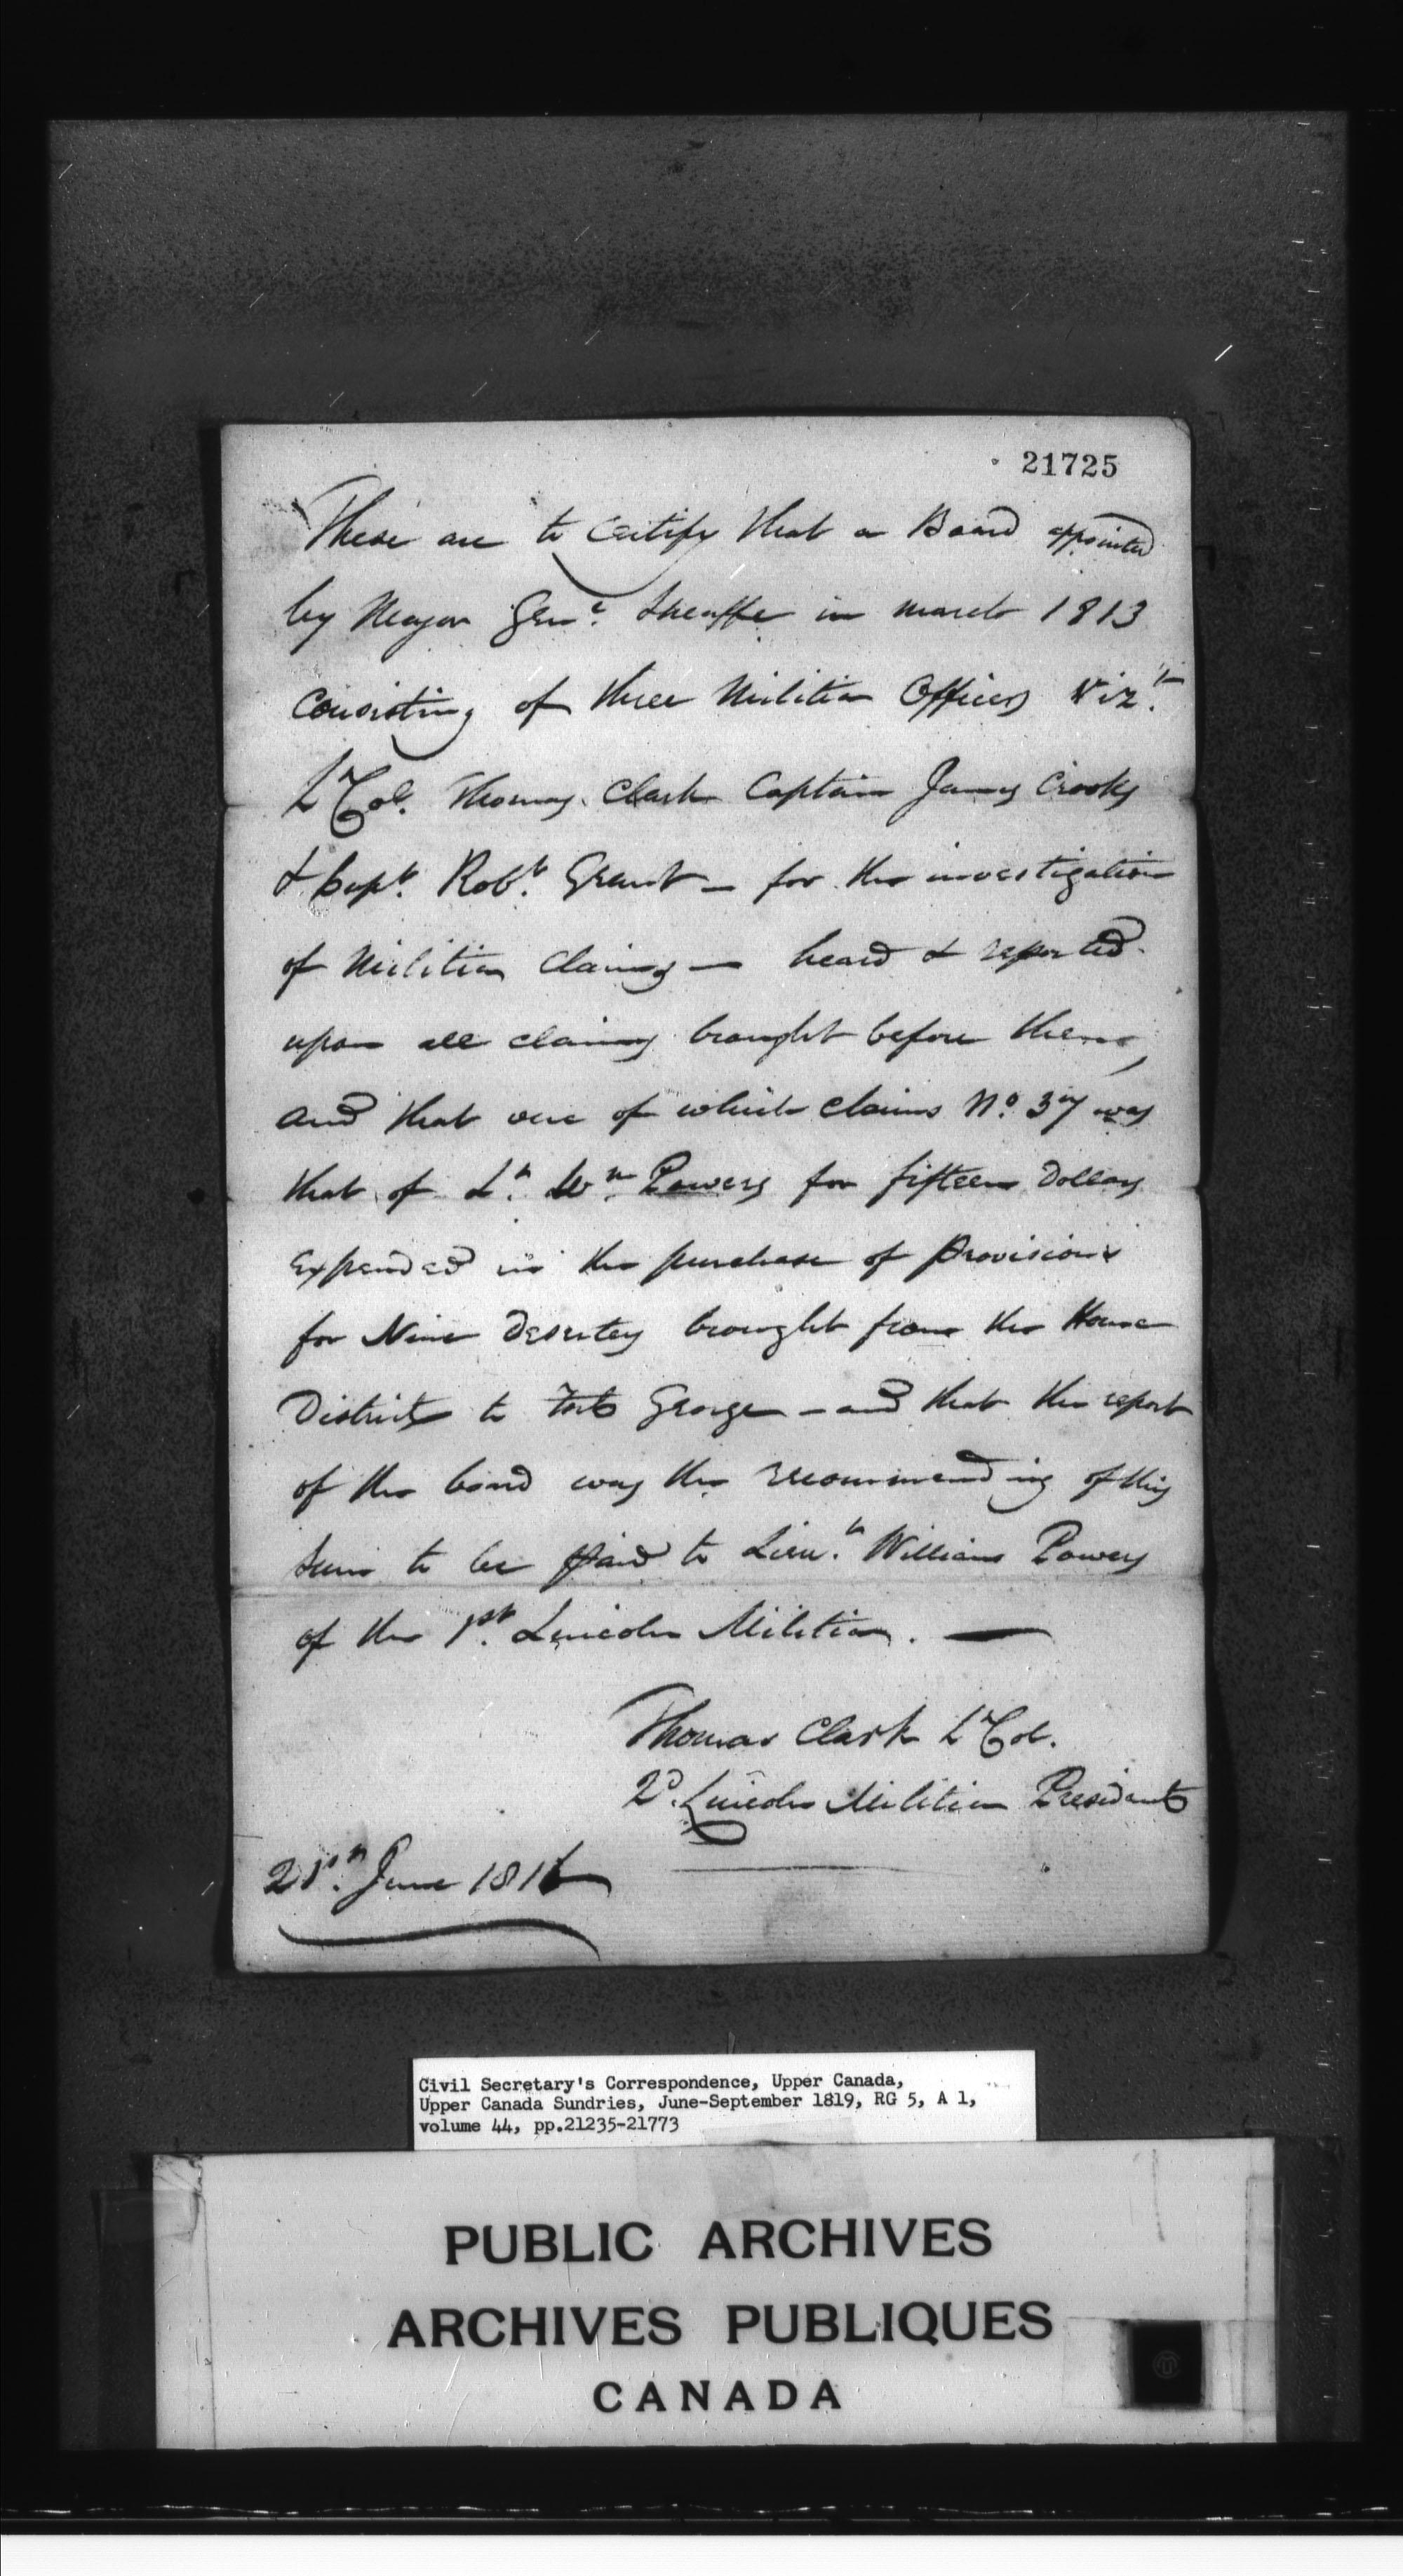 21725
These are to Certify that a Board appointed
by Major Gen.l Sheaffe in March 1813
Consisting of three Militia Officers Viz.t
Lt Col. Thomas Clark Captain James Crooks
& Capt. Robt. Grant — for the investigation
of Militia Claims — heard & reported
upon all claims brought before them,
and that one of which claims No. 37 was
that of Lt. Wm. Powers for fifteen Dollars
expended in the purchase of provisions
for Nine Deserters brought from the Home
District to Fort George — and that the report
of the board was the recommending of this
sum to be paid to Lieu.t William Powers
of the 1st. Lincoln Militia. —
Thomas Clark Lt Col.
2d. Lincoln Militia President
21st June 1816
Civil Secretary's Correspondence, Upper Canada,
Upper Canada Sundries, June-September 1819, RG 5, A 1,
volume 44, pp.21235-21773
PUBLIC ARCHIVES
ARCHIVES PUBLIQUES
CANADA